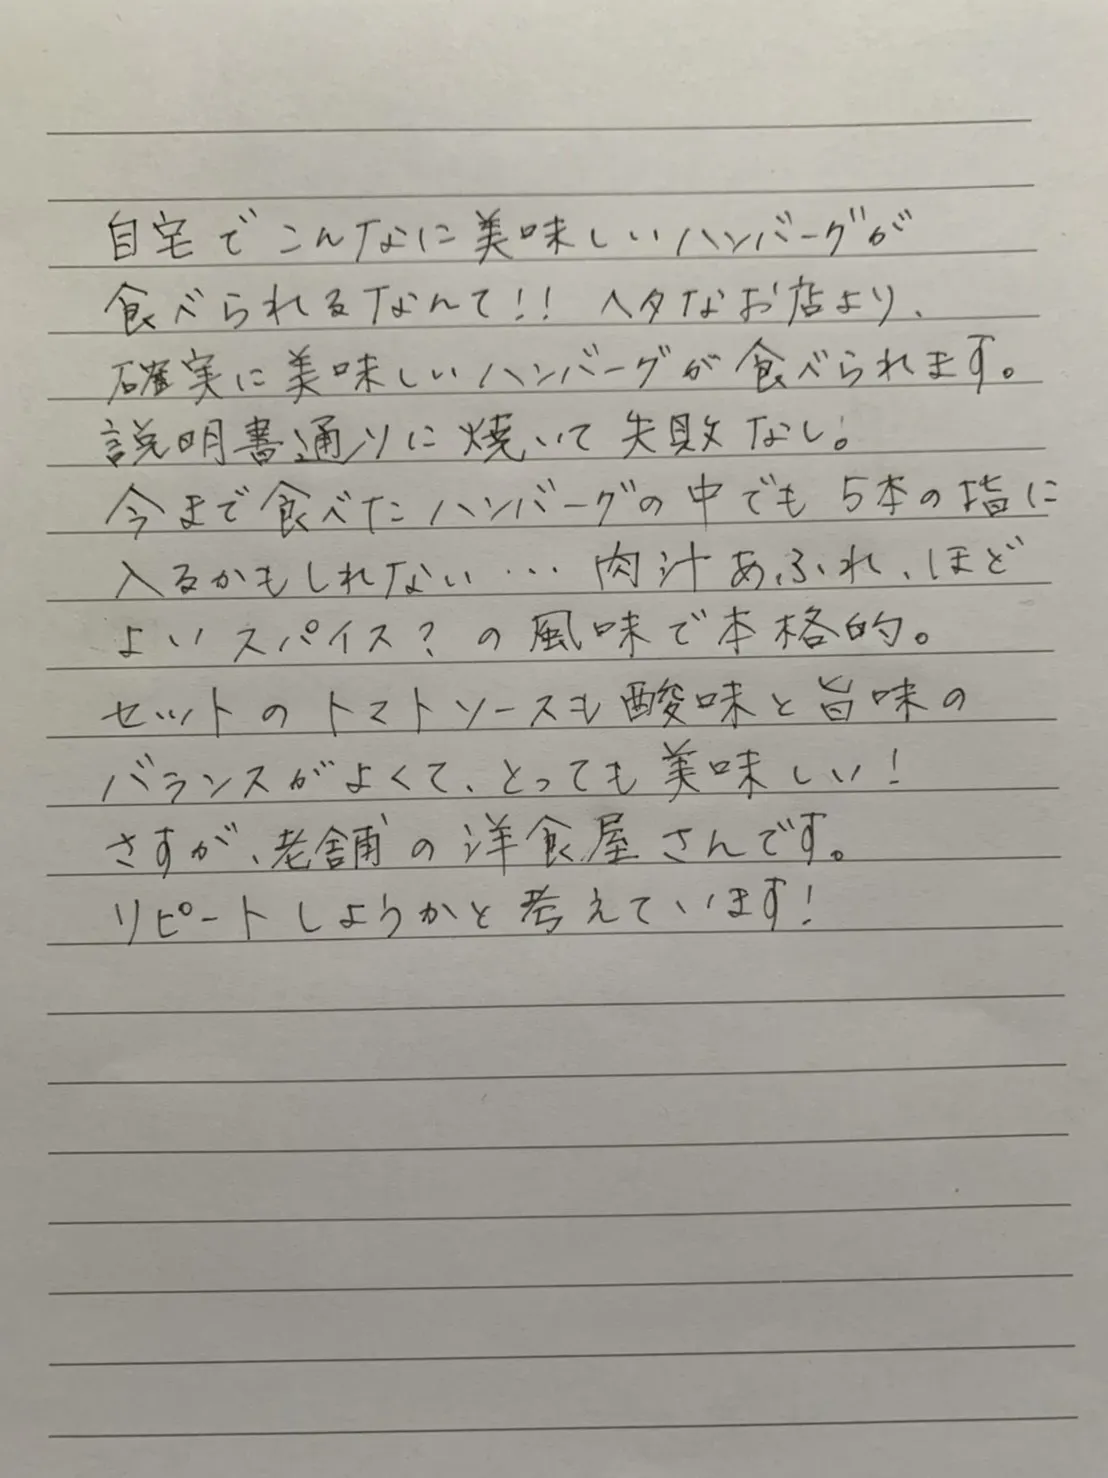 自宅でこんなに美味しいハンバーグが
食べられるなんて!! ヘタなお店より、
確実に美味しいハンバーグが食べられます。
説明書通りに焼いて失敗なし。
今まで食べたハンバーグの中でも5本の指に
入るかもしれない… 肉汁あふれ、ほど
よいスパイス?の風味で本格的。
セットのトマトソースも酸味と旨味の
バランスがよくて、とっても美味しい!
さすが、老舗の洋食屋さんです。
リピートしようかと考えています!